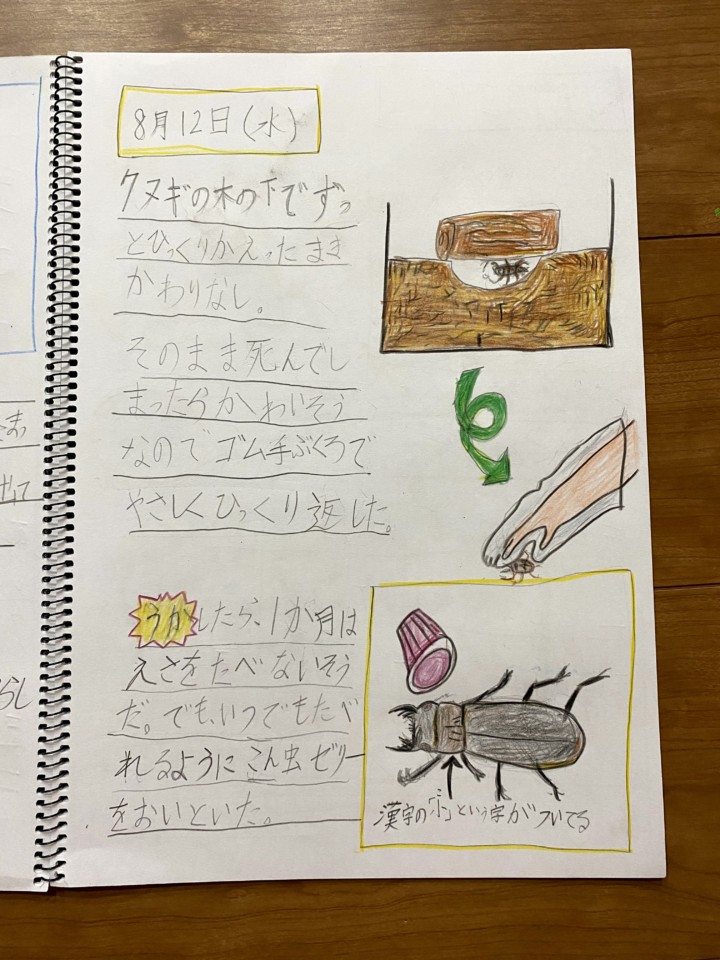 8月12日(水)
クヌギの木の下でずっ
とひっくりかえったまま
かわりなし。
そのまま死んでし
まったらかわいそう
なのでゴム手ぶくろで
やさしくひっくり返した。
うかしたら、1か月は
えさをたべないそう
だ。でも、いつでもたべ
れるようにこん虫ゼリー
をおいといた。
漢字の「小」という字がついてる